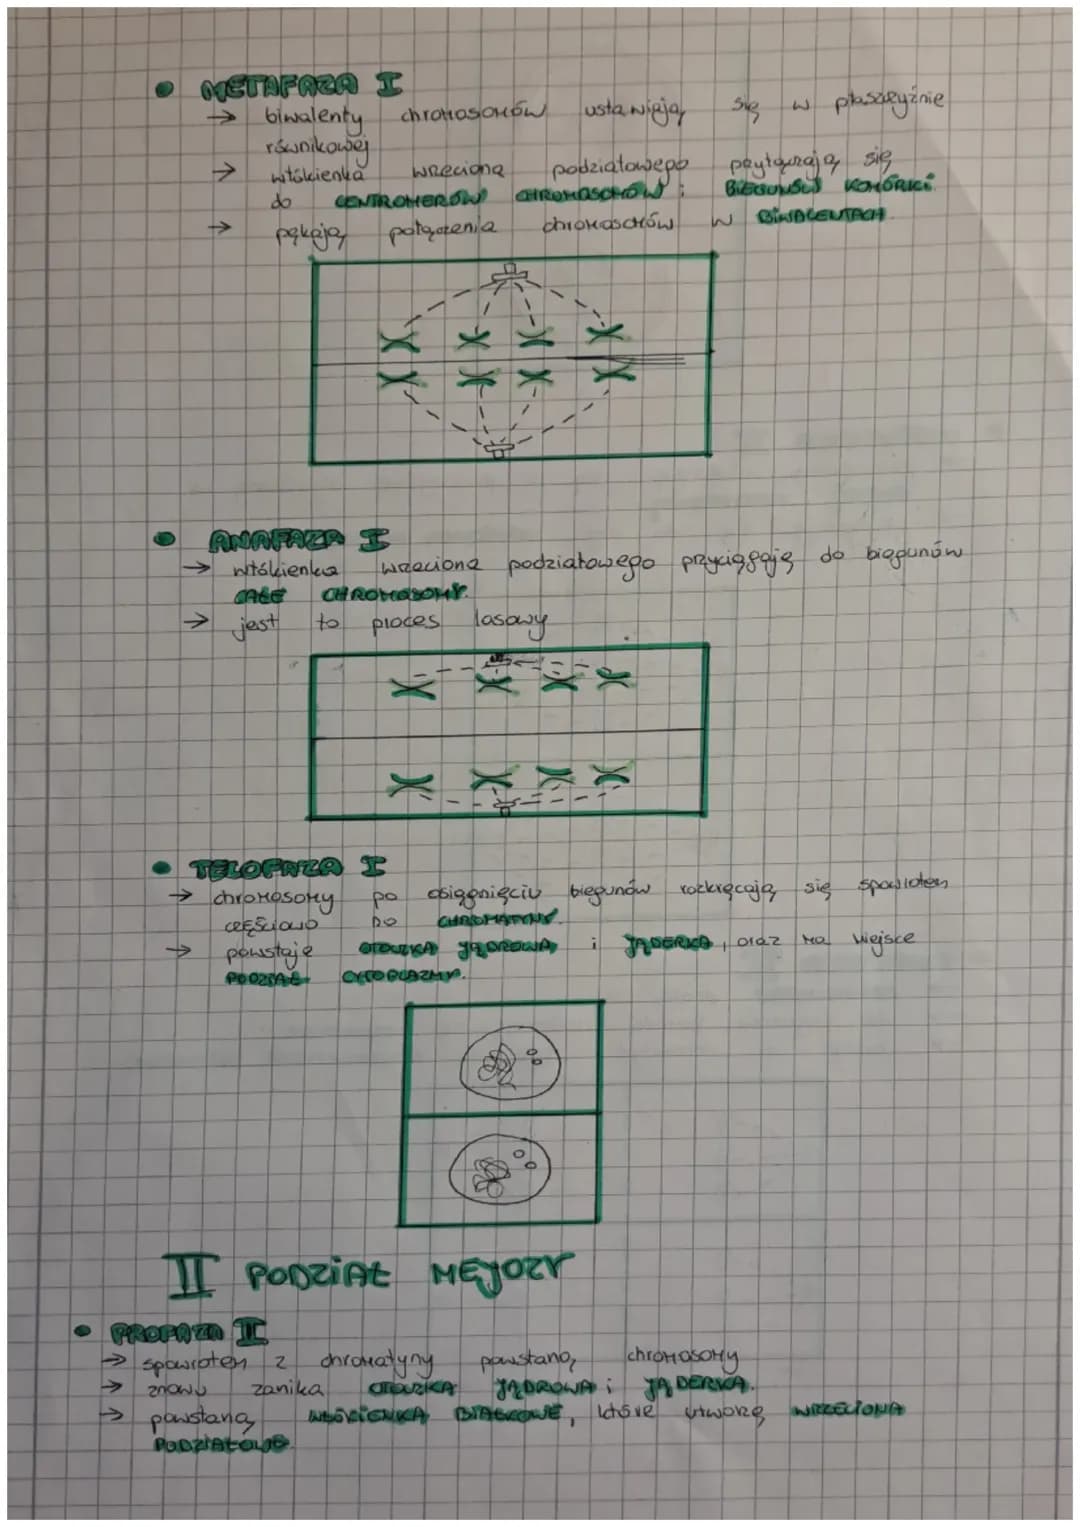 • METAFAZA I
→ biwalenty chromosomów ustawiają się w płaszczyźnie
równikowej
→ włókienka wrzeciona podziałowego przyłączają się
do CENTROMERÓW CHROMOSOMÓW i BIEGUNÓW KOMÓRKI.
→ pękają połączenia chromosomów w BIWALENTACH.
• ANAFAZA I
→ włókienka wrzeciona podziałowego przyciągają do biegunów
CAŁE CHROMOSOMY.
→ jest to proces losowy
• TELOFAZA I
→ chromosomy po osiągnięciu biegunów rozkręcają się spowrotem
częściowo DO CHROMATYNY.
→ powstaje OTOCZKA JĄDROWA i JĄDERKA, oraz ma miejsce
PODZIAŁ CYTOPLAZMY.
II PODZIAŁ MEJOZY
• PROFAZA II
→ spowrotem z chromatyny powstaną chromosomy
→ znowu zanika OTOCZKA JĄDROWA i JĄDERKA.
→ powstaną WŁÓKIENKA BIAŁKOWE, które utworzą WRZECIONA
PODZIAŁOWE